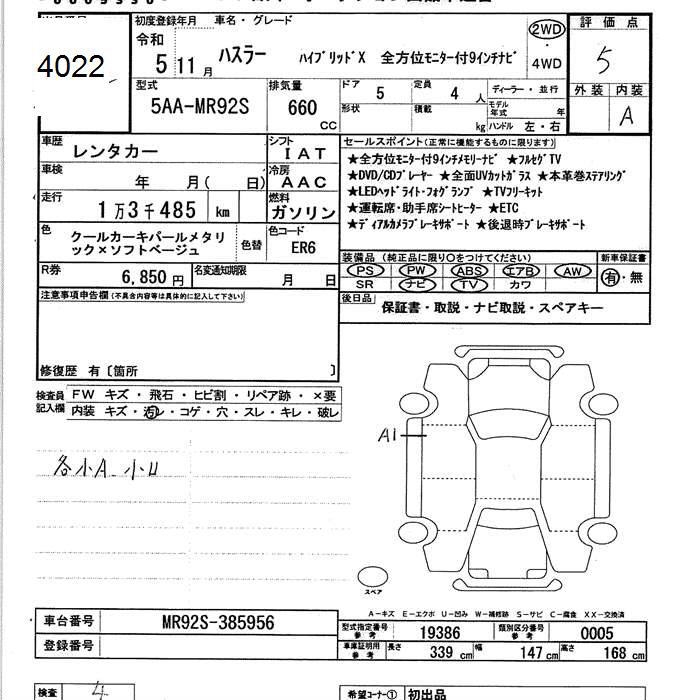 4022
初度登録年月 車名・グレード
令和
5 11月 ハスラー ハイブリッドX 全方位モニター付9インチナビ
2WD
・
4WD
評価点
5
外装 内装
A
型式
5AA-MR92S
排気量
660
CC
ドア 5 定員 4 人
形状 積載 kg
ディーラー・並行
モデル年式 年
ハンドル 左・右
車歴
レンタカー
シフト
IAT
車検
年 月( 日)
冷房
AAC
走行
1万3千485 km
燃料
ガソリン
色
クールカーキパールメタリ
ック×ソフトベージュ
色替
色コード
ER6
R券
6,850円
名変通知期限
月 日
セールスポイント(正常に機能するものに限ります)
★全方位モニター付9インチメモリーナビ ★フルセグTV
★DVD/CDプレーヤー ★全面UVカットガラス ★本革巻ステアリング
★LEDヘッドライト・フォグランプ ★TVフリーキット
★運転席・助手席シートヒーター ★ETC
★ディアルカメラブレーキサポート ★後退時ブレーキサポート
装備品(純正品に限り○をつけてください)
新車保証書
PS PW ABS エアB AW
SR ナビ TV カワ
有・無
後日品
保証書・取説・ナビ取説・スペアキー
注意事項申告欄(不具合内容等は具体的に記入して下さい)
修復歴 有〔箇所 〕
検査員
記入欄
FW キズ・飛石・ヒビ割・リペア跡・×要
内装 キズ・汚レ・コゲ・穴・スレ・キレ・破レ
各小A 小U
A1
スペア
A-キズ E-エクボ U-凹み W-補修跡 S-サビ C-腐食 XX-交換済
車台番号
MR92S-385956
登録番号
型式指定番号
参考
19386
類別区分番号
参考
0005
車庫証明用
参考
長さ 339 cm 幅 147 cm 高さ 168 cm
検査
4
希望コーナー① 初出品